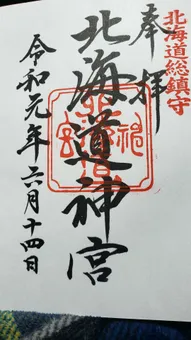 北海道総鎮守
奉拝
北海道神宮
令和元年六月十四日